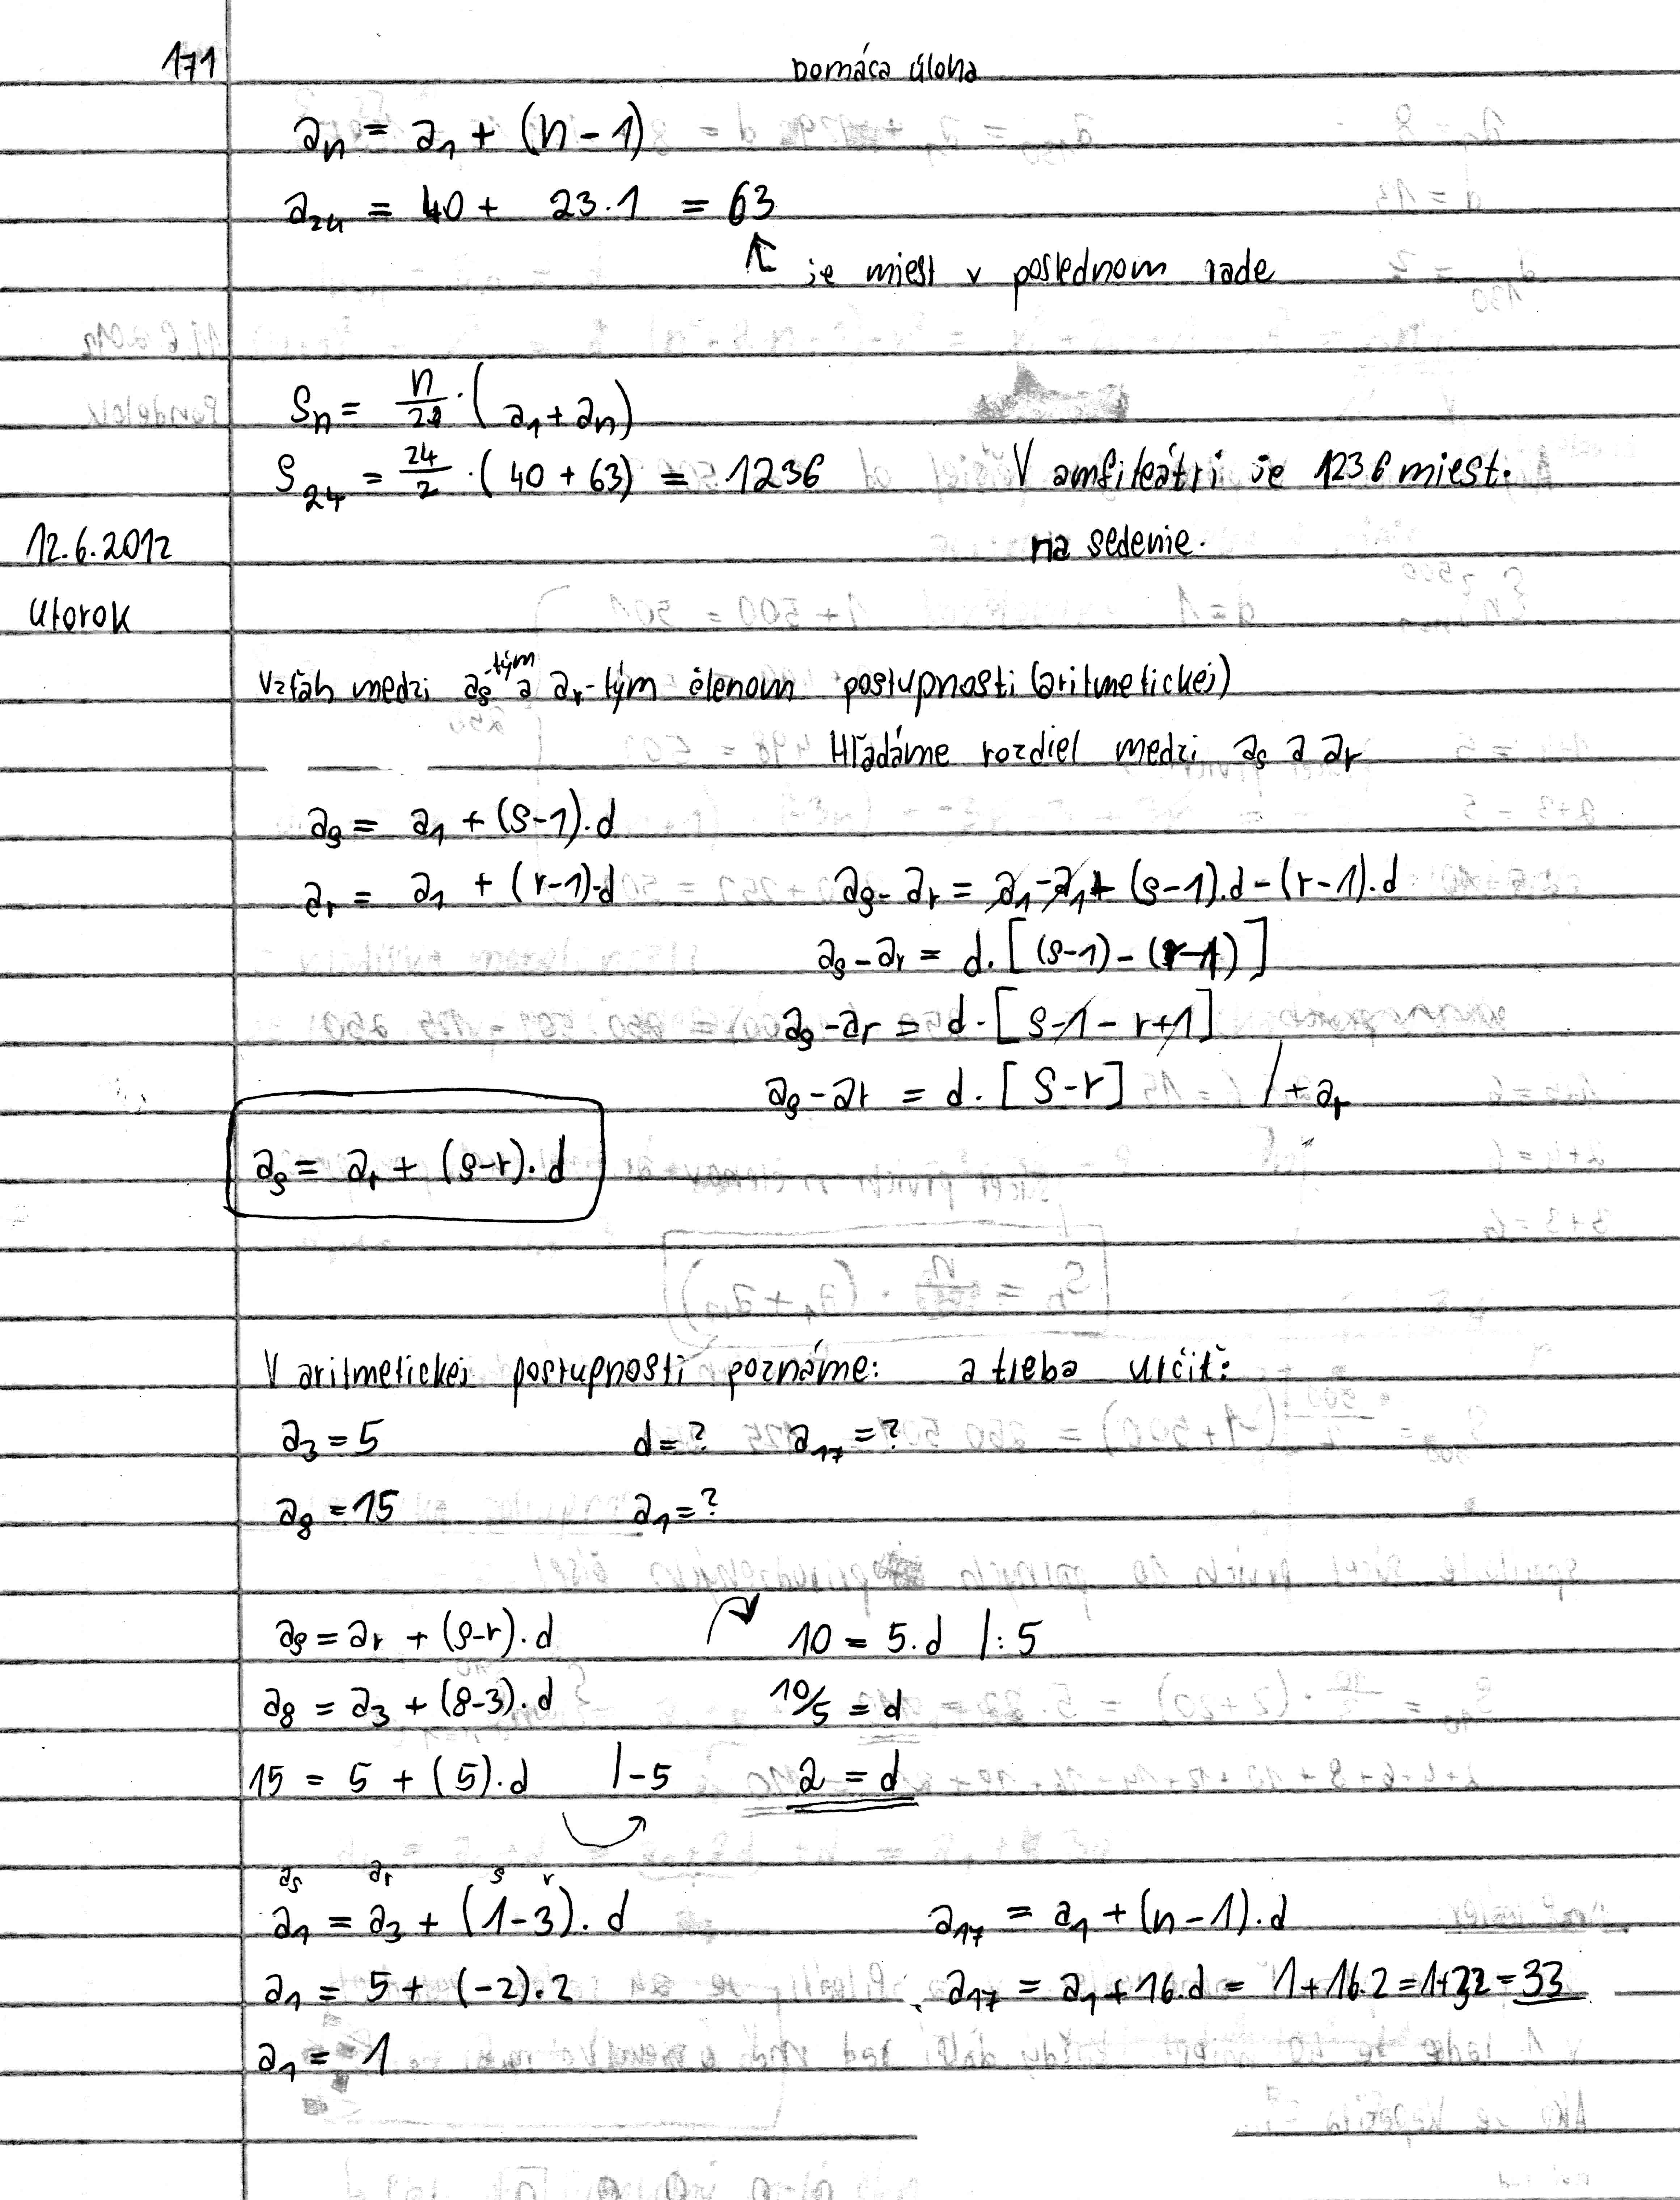 171
Domáca úloha
a_n = a_1 + (n - 1)
a_24 = 40 + 23.1 = 63
↑ je miest v poslednom rade
S_n = n/2 · (a_1 + a_n)
S_24 = 24/2 · (40 + 63) = 1236 V amfiteátri je 1236 miest.
12.6.2012 na sedenie.
Utorok
Vzťah medzi a_s-tým a a_r-tým členom postupnosti (aritmetickej)
Hľadáme rozdiel medzi a_s a a_r
a_s = a_1 + (s-1).d
a_r = a_1 + (r-1).d a_s - a_r = a_1 - a_1 + (s-1).d - (r-1).d
a_s - a_r = d. [(s-1) - (r-1)]
a_s - a_r = d. [s-1 - r+1]
a_s - a_r = d. [s-r] / + a_r
a_s = a_r + (s-r). d
V aritmetickej postupnosti poznáme: a treba určiť:
a_3 = 5 d = ? a_17 = ?
a_8 = 15 a_1 = ?
a_s = a_r + (s-r). d 10 = 5.d /: 5
a_8 = a_3 + (8-3). d 10/5 = d
15 = 5 + (5).d /-5 2 = d
a_s a_r s r
a_1 = a_3 + (1-3). d a_17 = a_1 + (n-1).d
a_1 = 5 + (-2).2 a_17 = a_1 + 16.d = 1+16.2 = 1+32 = 33
a_1 = 1